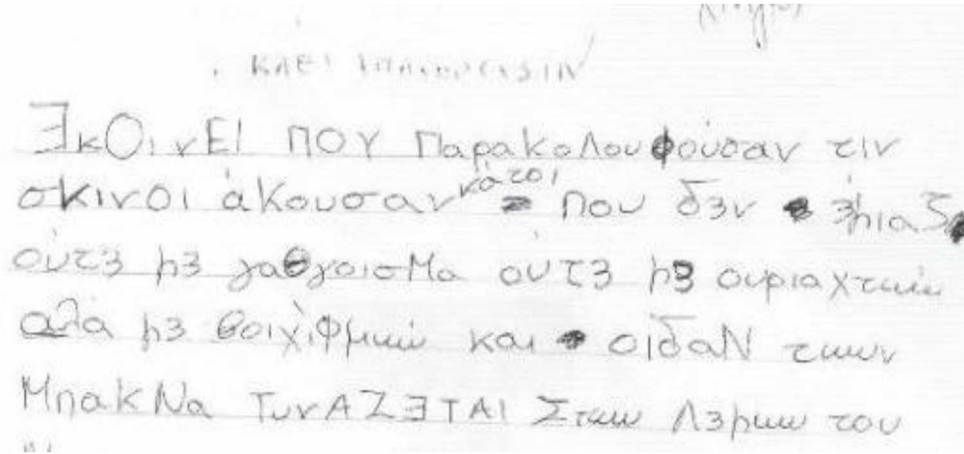 ΕκΟινΕΙ ΠΟΥ Παρακολουφούσαν τιν
σκινοι άκουσαν κατοι που δεν έμιαζ
ούτε με γαθγοισΜα ούτε με ουριαχτωώ
αλά με θοιχίφμωώ και οιδαΝ τωων
ΜπακΝα ΤινΑΖΕΤΑΙ Στωω Λεμωω του